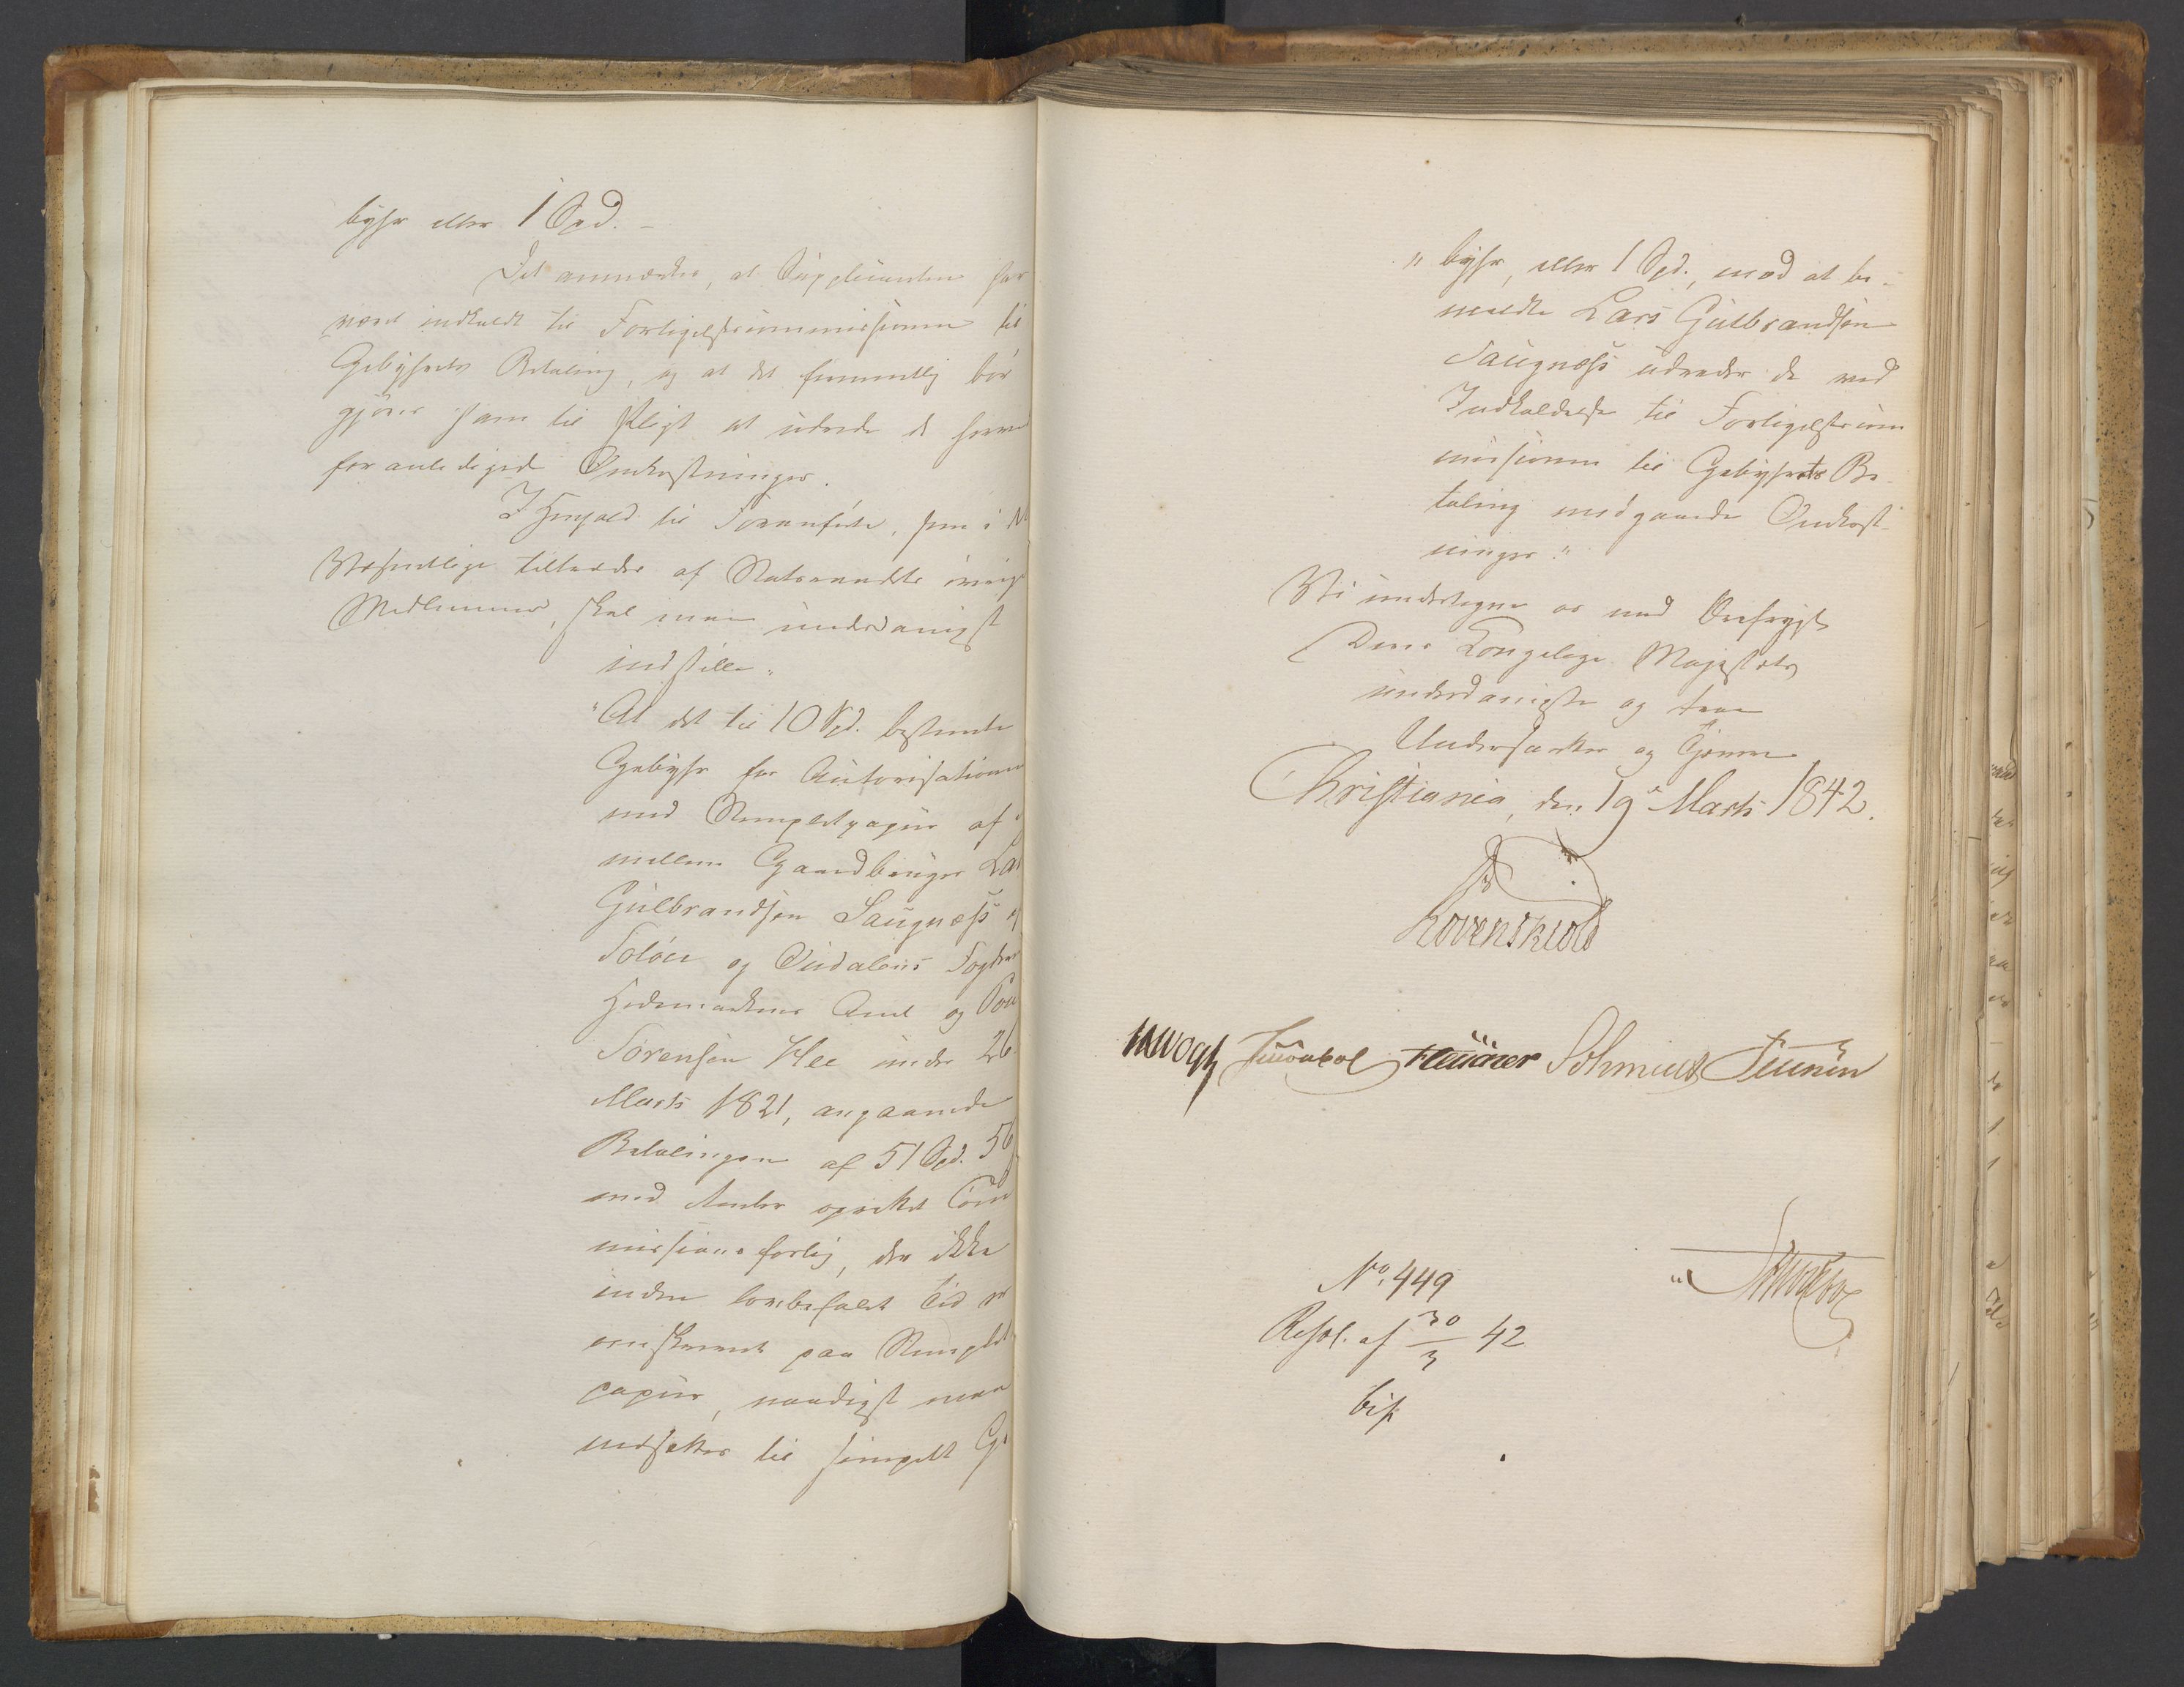 byhr eller 1 Spd. –
Det anmærkes, at Supplicanten har
været indkaldt til Forligelsescommissionen til
Gebyhrets Betaling, og at det formentlig bør
gjøres ham til Pligt at udrede de herved
foranledigede Omkostninger.
I Henhold til Foranførte, som i det
Væsentlige tiltrædes af Statsraadets øvrige
Medlemmer, skal man underdanigst
indstille:
"At det til 10 Spd. bestemte
Gebyhr for Autorisationen
med Stempletpapiir af
mellem Gaardbruger Lars
Gulbrandsen Saugnæss af
Soløer og Oudalens Fogderi
Hedemarkens Amt og
Sørensen Hee under 26
Marts 1821, angaaende
Betalingen af 51 Spd. 56
med Renter oprettet Com
missionsforlig, der ikke
inden lovbefalet Tid er
omskrevet paa Stemplet
papiir, naadigst maa
nedsættes til simpelt Ge
" byhr, eller 1 Spd., mod at be-
meldte Lars Gulbrandsen
Saugnæss udreder de ved
Indkaldelse til Forligelsescom
missionen til Gebyhrets Be-
taling medgaaende Omkost-
ninger."
Vi undertegne os med Ærefrygt
Deres Kongelige Majestæts
underdanigste og troe
Undersaatter og Tjenere
Christiania, den 19de Marts 1842.
Løvenskiold
Vogt Schmidt
No. 449
Resol. af 30/3 42